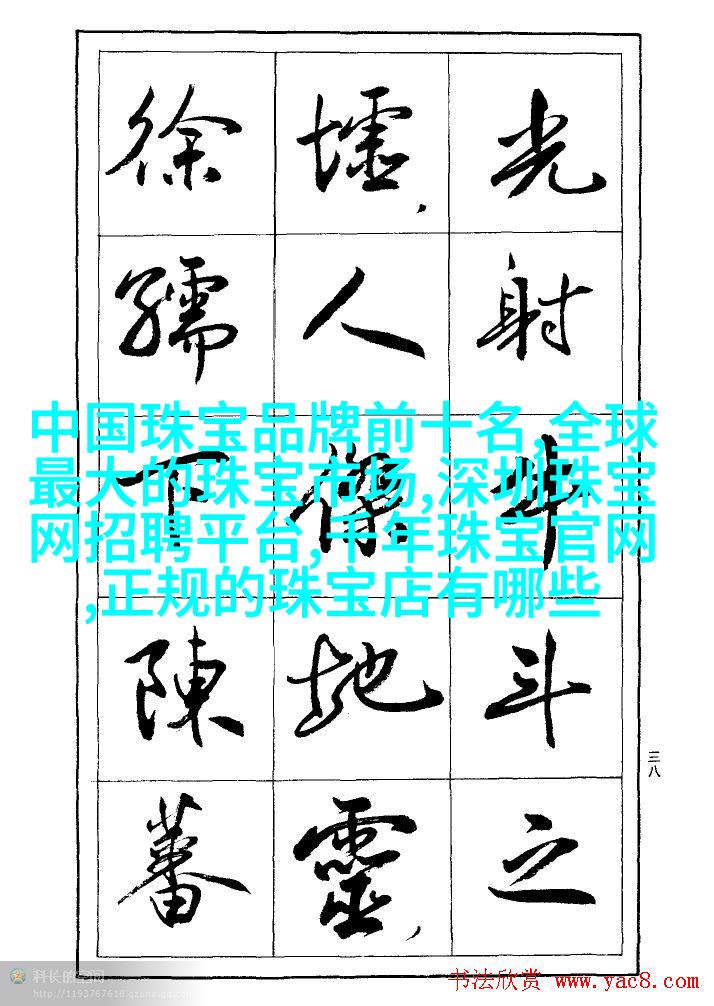 光射牛斗之
墟,人傑地靈,
徐孺下陳蕃
中国珠宝品牌前十名,全球
最大的珠宝市场,深圳珠宝
网招聘平台,千年珠宝官网
,正规的珠宝店有哪些
三八
科长的空间
http://1193767618.qzone.qq.com
书法欣赏 www.yac8.com